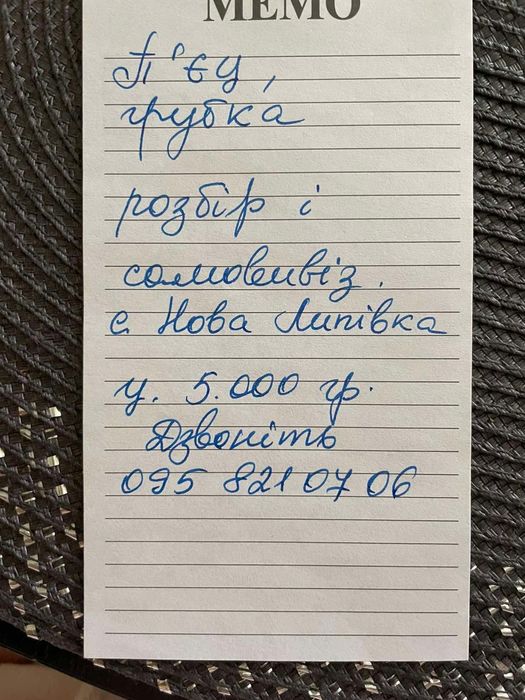 МЕМО
П'єц,
грубка
розбір і
самовивіз.
с. Нова Липівка
ц. 5.000 гр.
Дзвоніть
095 821 07 06